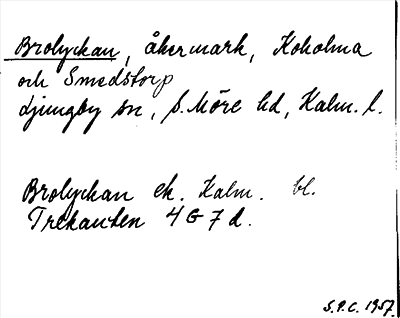 Brolyckan, åkermark, Kokolma
och Smedstorp
Ljungby sn, S. Möre hd, Kalm. l.
Brolyckan ek. Kalm. bl.
Trekanten 4 G 7 d.
S.P.C. 1957.